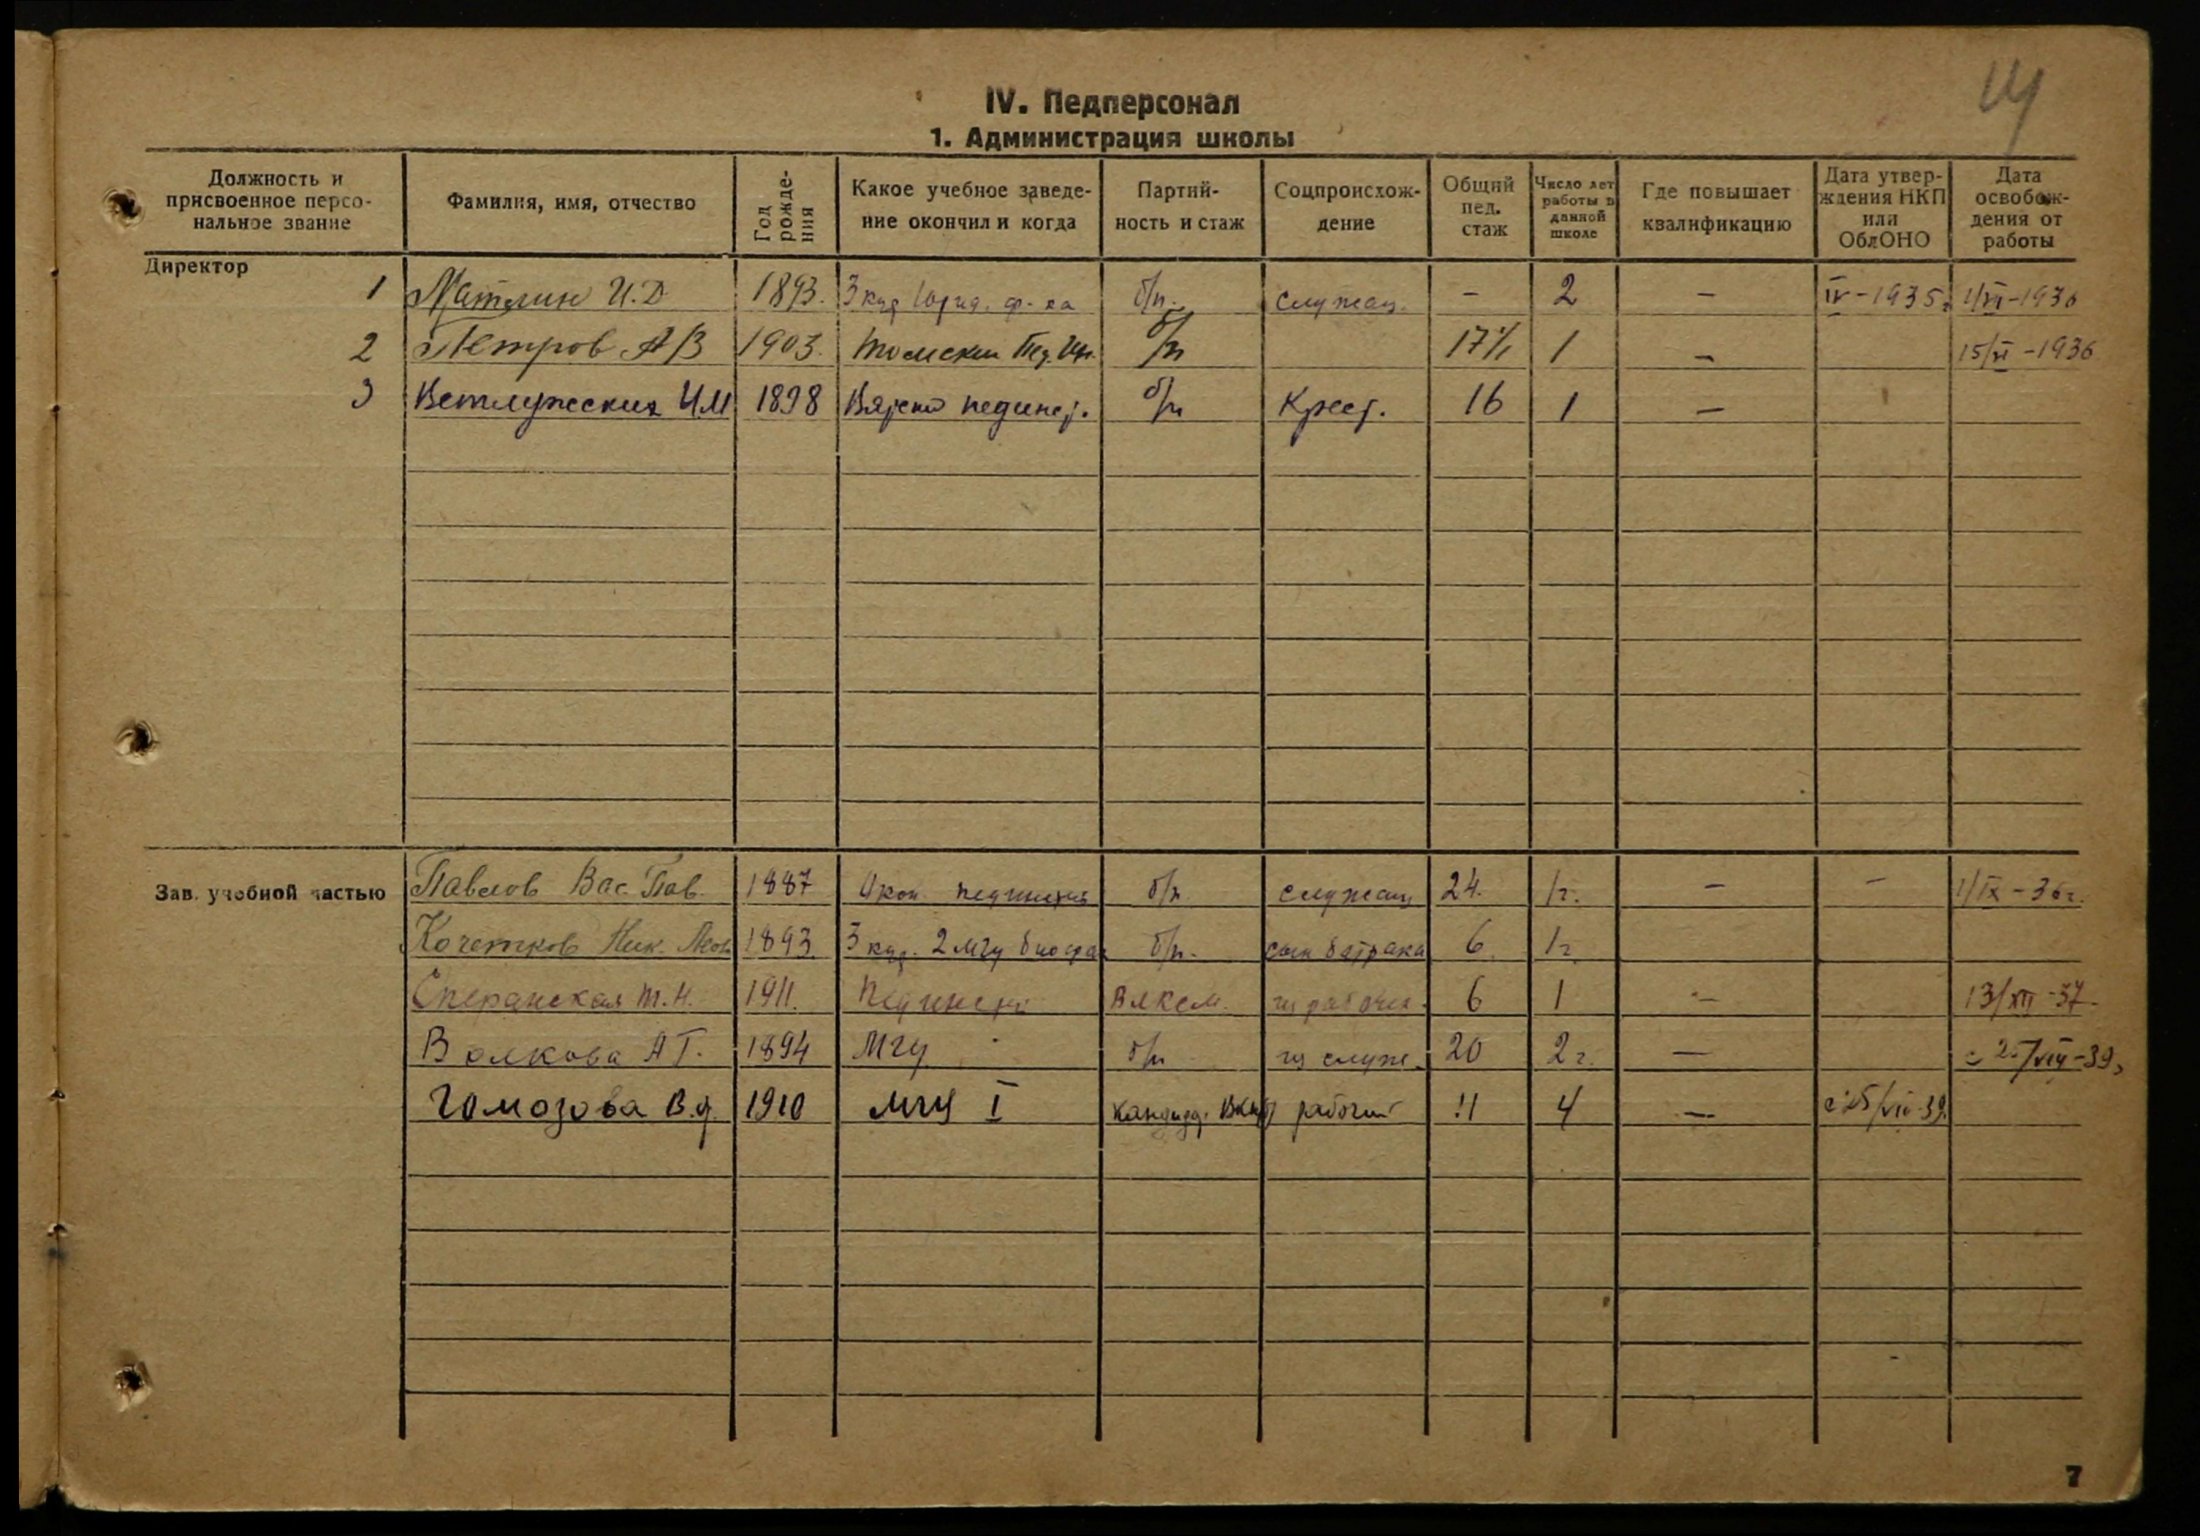 IV. Педперсонал
1. Администрация школы
Должность и присвоенное персо- нальное звание | Фамилия, имя, отчество | Год рожде- ния | Какое учебное заведе- ние окончил и когда | Партий- ность и стаж | Соцпроисхож- дение | Общий пед. стаж | Число лет работы в данной школе | Где повышает квалификацию | Дата утвер- ждения НКП или ОблОНО | Дата освобож- дения от работы
Директор
1 И.Д. 1893. 3 кур. Юрид. ф-та б/п. служащ. – 2 – IV-1935г 1/VI-1936
2 Петров А В 1903. Томский Пед. Ин. б/п 17 1 – 15/VI-1936
3 Ветлужских И.М 1898 Вятский пединст. б/п Крест. 16 1 –
Зав. учебной частью Павлов Вас. Пав. 1887 Окон. пединст б/п служащ 24. 1г. – – 1/IX-36г.
Кочетков Ник. Яков 1893. 3 кур. 2 МГУ биофак б/п. сын батрака 6. 1г.
Сперанская Т.Н. 1911. Пединст ВЛКСМ. из рабочих. 6 1 – 13/XII-37.
Волкова А Г. 1894 МГУ б/п из служ. 20 2 г. – с 25/VIII-39,
Гомозова В.Д. 1910 МГУ I кандидат ВКП(б) рабочий 11 4 – с 25/VIII-39.
7